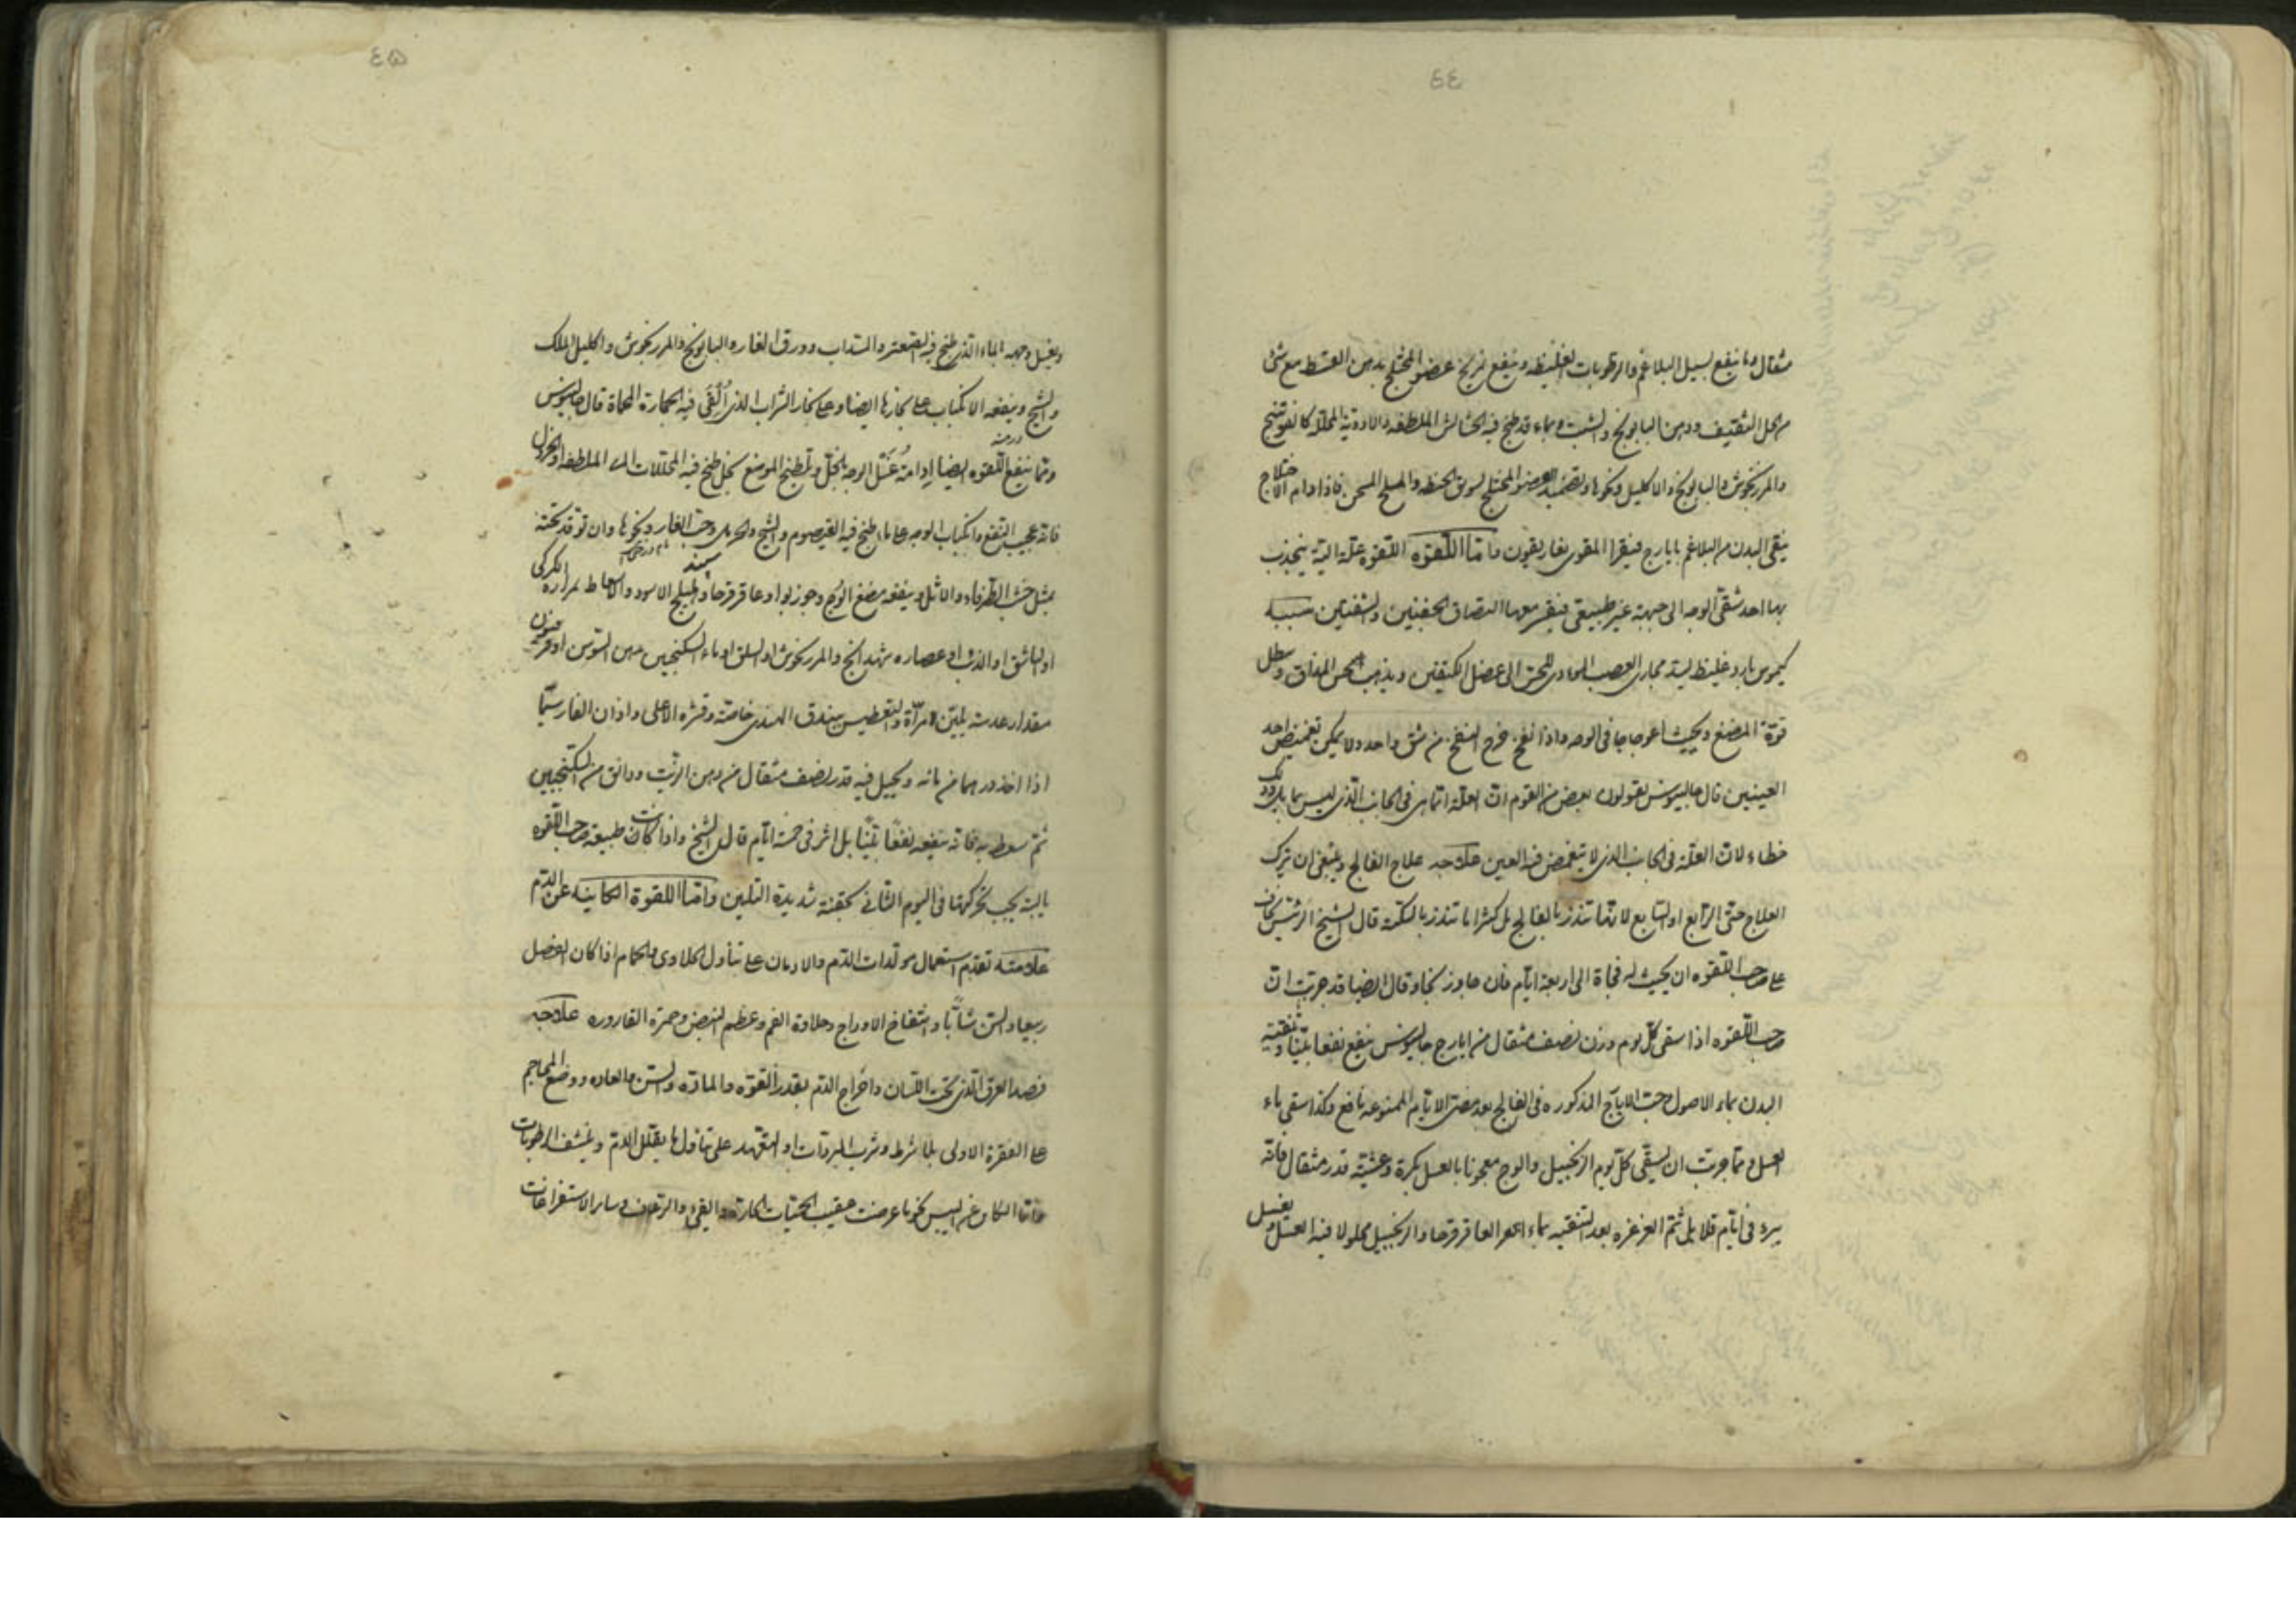 ٤٤
مثقال وما ينفع يسيل البلاغم والرطوبات الغليظه وينفع تمريخ عضو المختلج بدهن القسط مع شئ
من الخل الثقيف ودهن البابونج والشبت وبماء قد طبخ فيه الحشائش الملطفه والادوية المحللة كالفوتنج
والمرزنجوش والبابونج والاكليل ونحوها وتضميد العضو المختلج بسويق الحنطه والملح المسخن فاذا دام الاختلاج
ينقى البدن من البلاغم بايارج فيقرا المقوى بغاريقون واما اللقوه اللقوه علة الية ينجذب
بها احد شقى الوجه الى جهة غير طبيعى فيغير معها التصاق الجفنين والشفتين سببه
كيموس بارد غليظ يسد مجارى العصب المؤدى للحس الى عضل الكتفين ويذهب الحس المذاق ويبطل
قوة المضغ ويحدث اعوجاجا فى الوجه واذا نفخ خرج النفخ من شق واحد ولا يمكن تغميض احد
العينين قال جالينوس يقولون بعض من القوم ان العلة انما هى فى الجانب الذى ليس بمايل وذلك
خطاء لان العلة فى الجانب الذى لا يتغمض فيه العين علاجه علاج الفالج وينبغى ان يترك
العلاج حتى الرابع او السابع لانها تنذر بالفالج بل كثيرا ما تنذر بالسكته قال الشيخ الرئيس يخاف
على صاحب اللقوه ان يحدث له فجاة الى اربعة ايام فان جاوز نجا وقال ايضا قد جربت ان
صاحب اللقوه اذا سقى كل يوم وزن نصف مثقال من ايارج جالينوس ينفع نفعا بينا وتنقية
البدن بماء الاصول وحب الايارج المذكوره فى الفالج بعد مضى الايام الممنوعه نافع وكذا سقى ماء
العسل ومما جربت ان يسقى كل يوم الزنجبيل والوج معجونا بالعسل بكرة وعشية قدر مثقال فانه
يبرء فى ايام قلايل ثم الغرغره بعد التنقيه بماء العاقرقرحا والزنجبيل محلولا فيه العسل ويغسل
٤٥
ويغسل وجهه الماء الذى طبخ فيه الصعتر والسداب وورق الغار والبابونج والمرزنجوش واكليل الملك
والشيح وينفعه الانكباب على بخارها ايضا وعلى بخار الشراب الذى اُلْقَى فيه الحجارة المحماة قال جالينوس
درمنه
ومما ينفع اللقوه ايضا ادامة غسل الوجه بالخل وتلطيخ الموضع بخل طبخ فيه المحللات الملطفه والخردل
فانه عجيب النفع وانكباب الوجه على ماء طبخ فيه القيصوم والشيح والحرمل وحب الغار ونحوها وان توقد تحته
سپند
بمثل خشب الطرفاء والاثل وينفعه مضغ الوج وجوزبوا وعاقرقرحا وهليلج الاسود والاسعاط بمرارة الكركى
او الباشق او الذئب او عصاره شهدانج والمرزنجوش او السلق او ماء السكنجبين بدهن السوسن او فرفيون
مقدار عدسة بلبن الامرأة والتعطيس ببندق الهندى خاصة وقشره الاعلى واذان الفار سيما
اذا اخذ درهما من مائه ويجعل فيه قدر نصف مثقال من دهن الزيت ودانق من السكنجبين
ثم سعط به فانه ينفعه نفعًا بينًا بل اثر فى خمسة ايام قال الشيخ واذا كانت طبيعة صاحب اللقوه
يابسة يجب تحركها فى اليوم الثانى بحقنة شديدة التليين واما اللقوة الكاينه عن الدم
علامته تقدم استعمال مولدات الدم والادمان على تناول الحلاوى والحمام اذا كان الفصل
ربيعا والسن شابًا وانتفاخ الاوداج وحلاوة الفم وعظم النبض وحمرة القاروره علاجه
فصد العرق الذى تحت اللسان واخراج الدم بقدر القوة والمادة والسن والعاده ووضع المحاجم
على الفقرة الاولى بلا شرط وشرب المبردات او التعهد على تناول ما يقلل الدم وينشف الرطوبات
واما الكاين عن اليبس نحو ما عرضت عقيب الحميات الحارة والقئ والرعاف وساير الاستفراغات